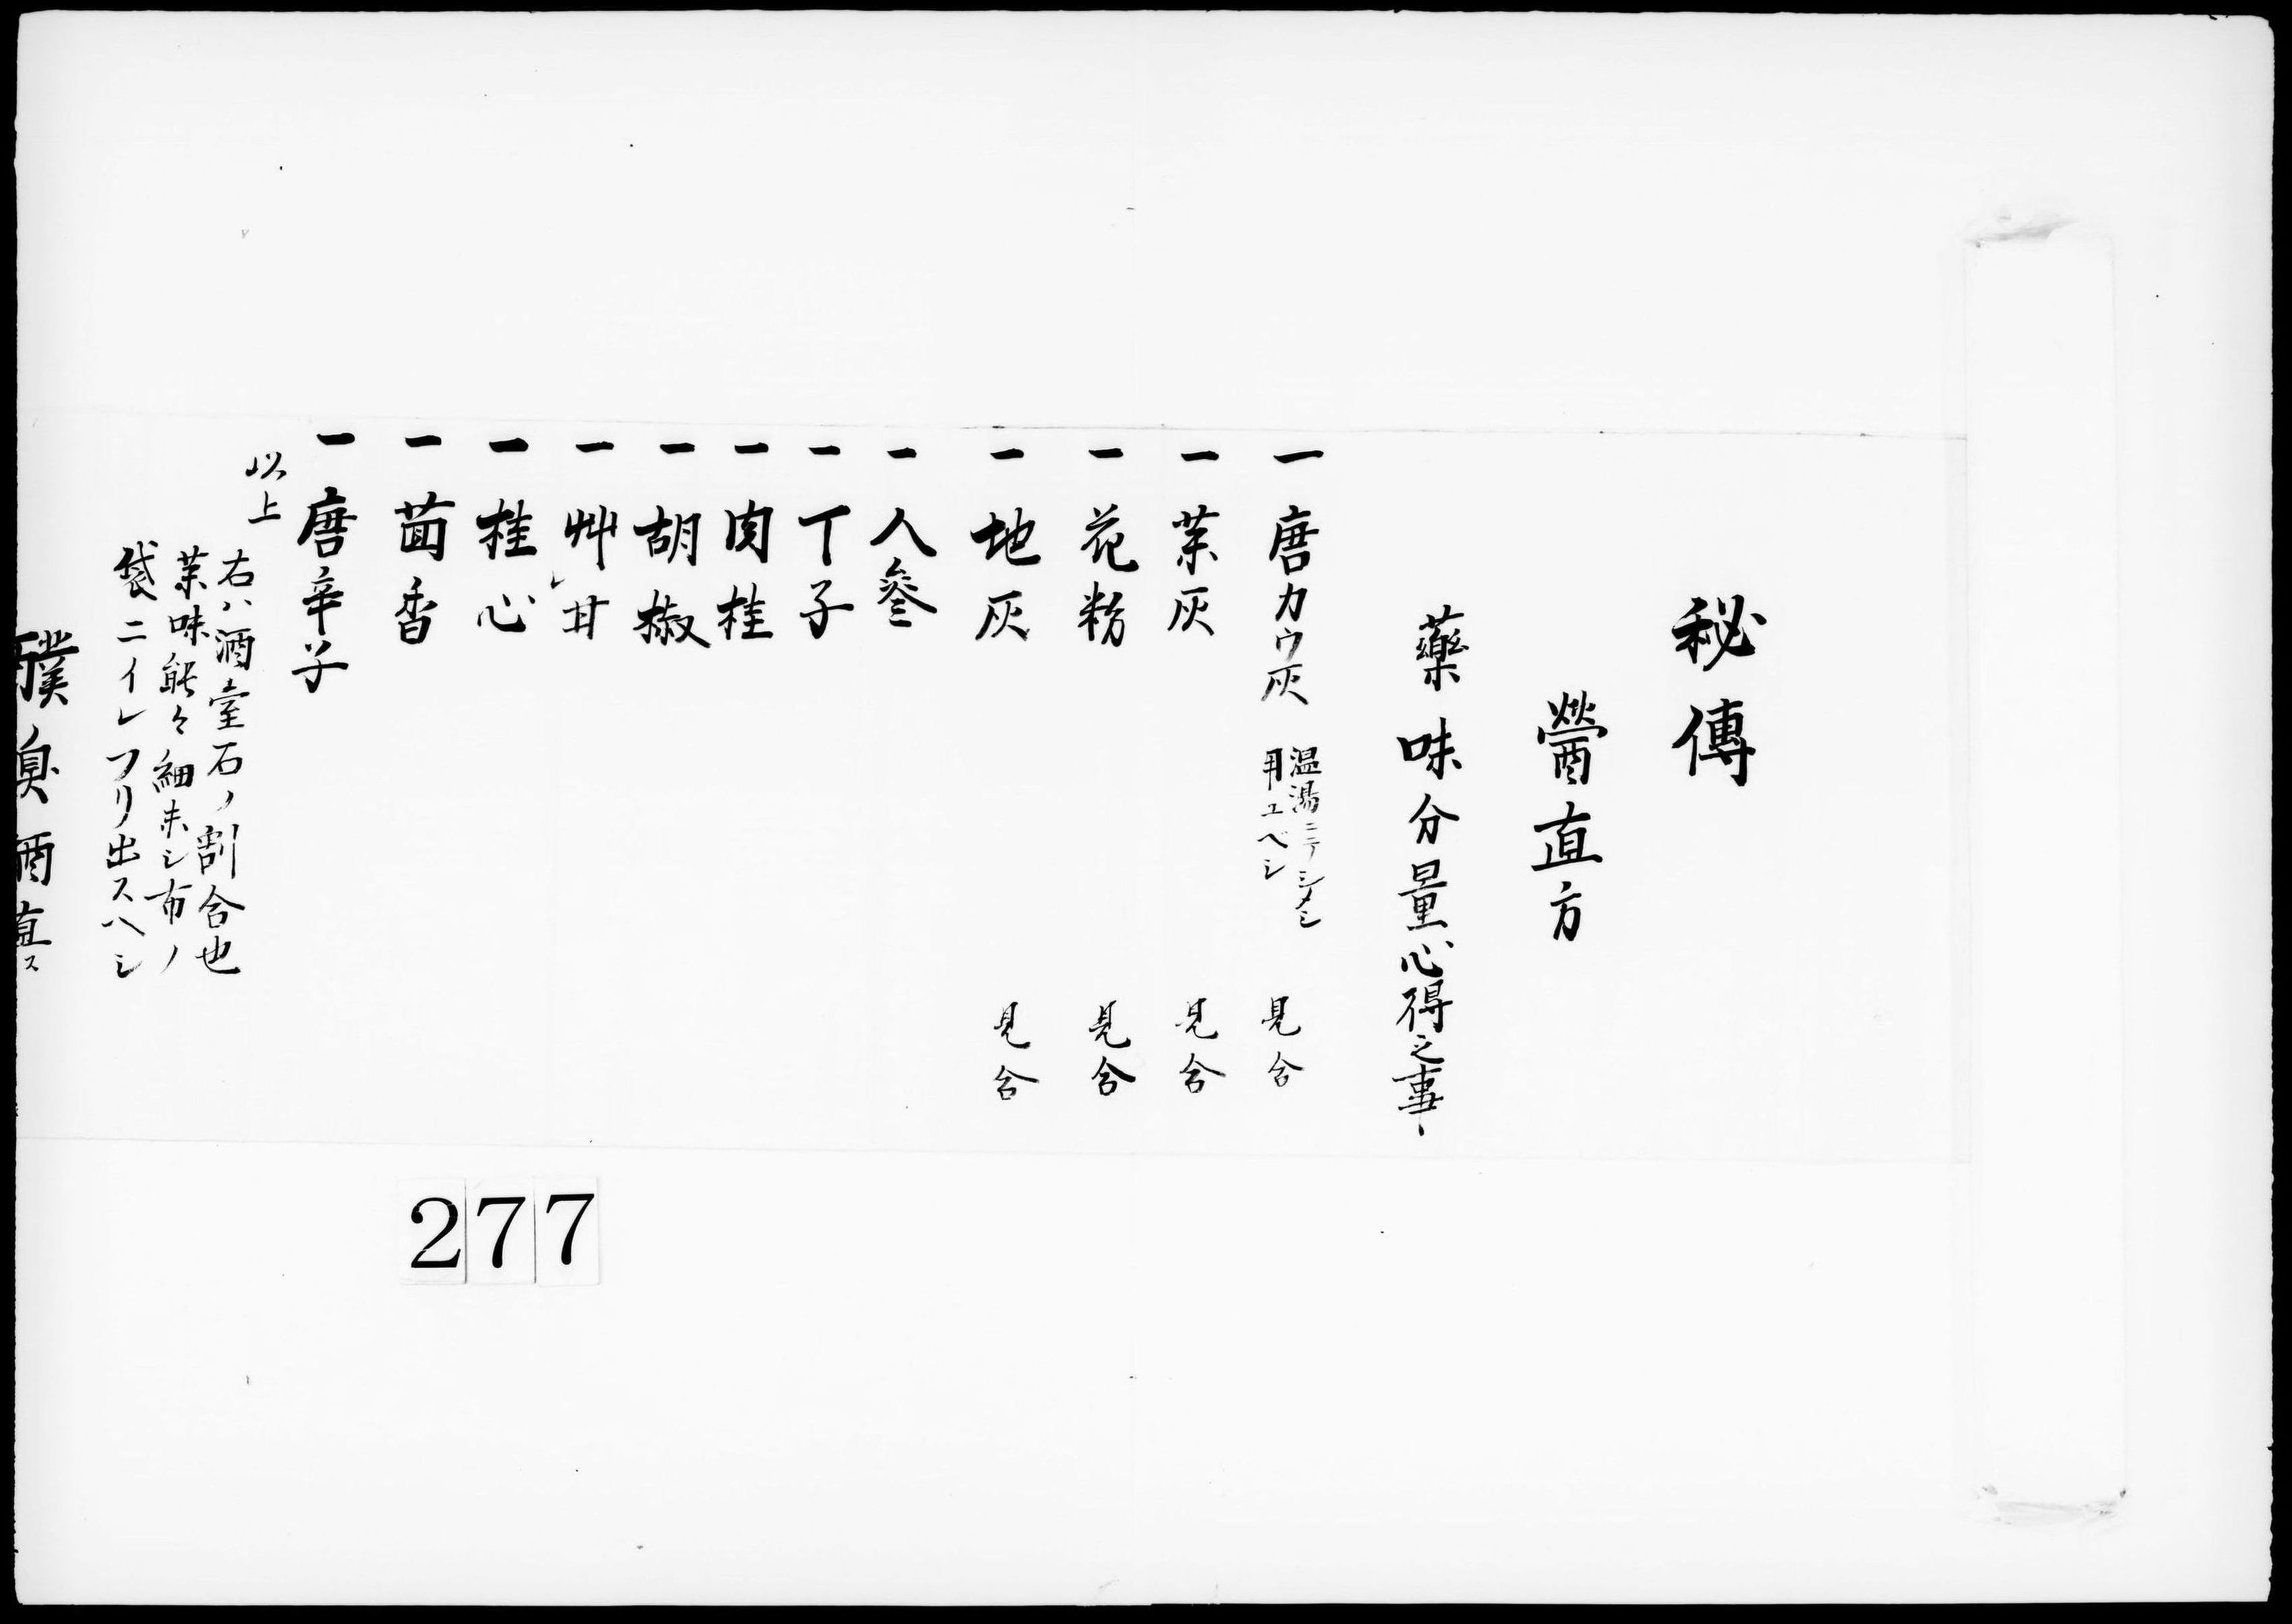 秘傳
醟直方
藥味分量心得之事
一 唐カウ灰 温湯ニテシメシ用ユベシ 見合
一 茱灰 見合
一 花粉 見合
一 地灰 見合
一 人參
一 丁子
一 肉桂
一 胡椒
一 艸レ甘
一 桂心
一 茴香
一 唐辛子
以上
右ハ酒壹石ノ割合也
茱味能々細末シ布ノ
袋ニイレフリ出スヘシ
醭臭酒直ス
277